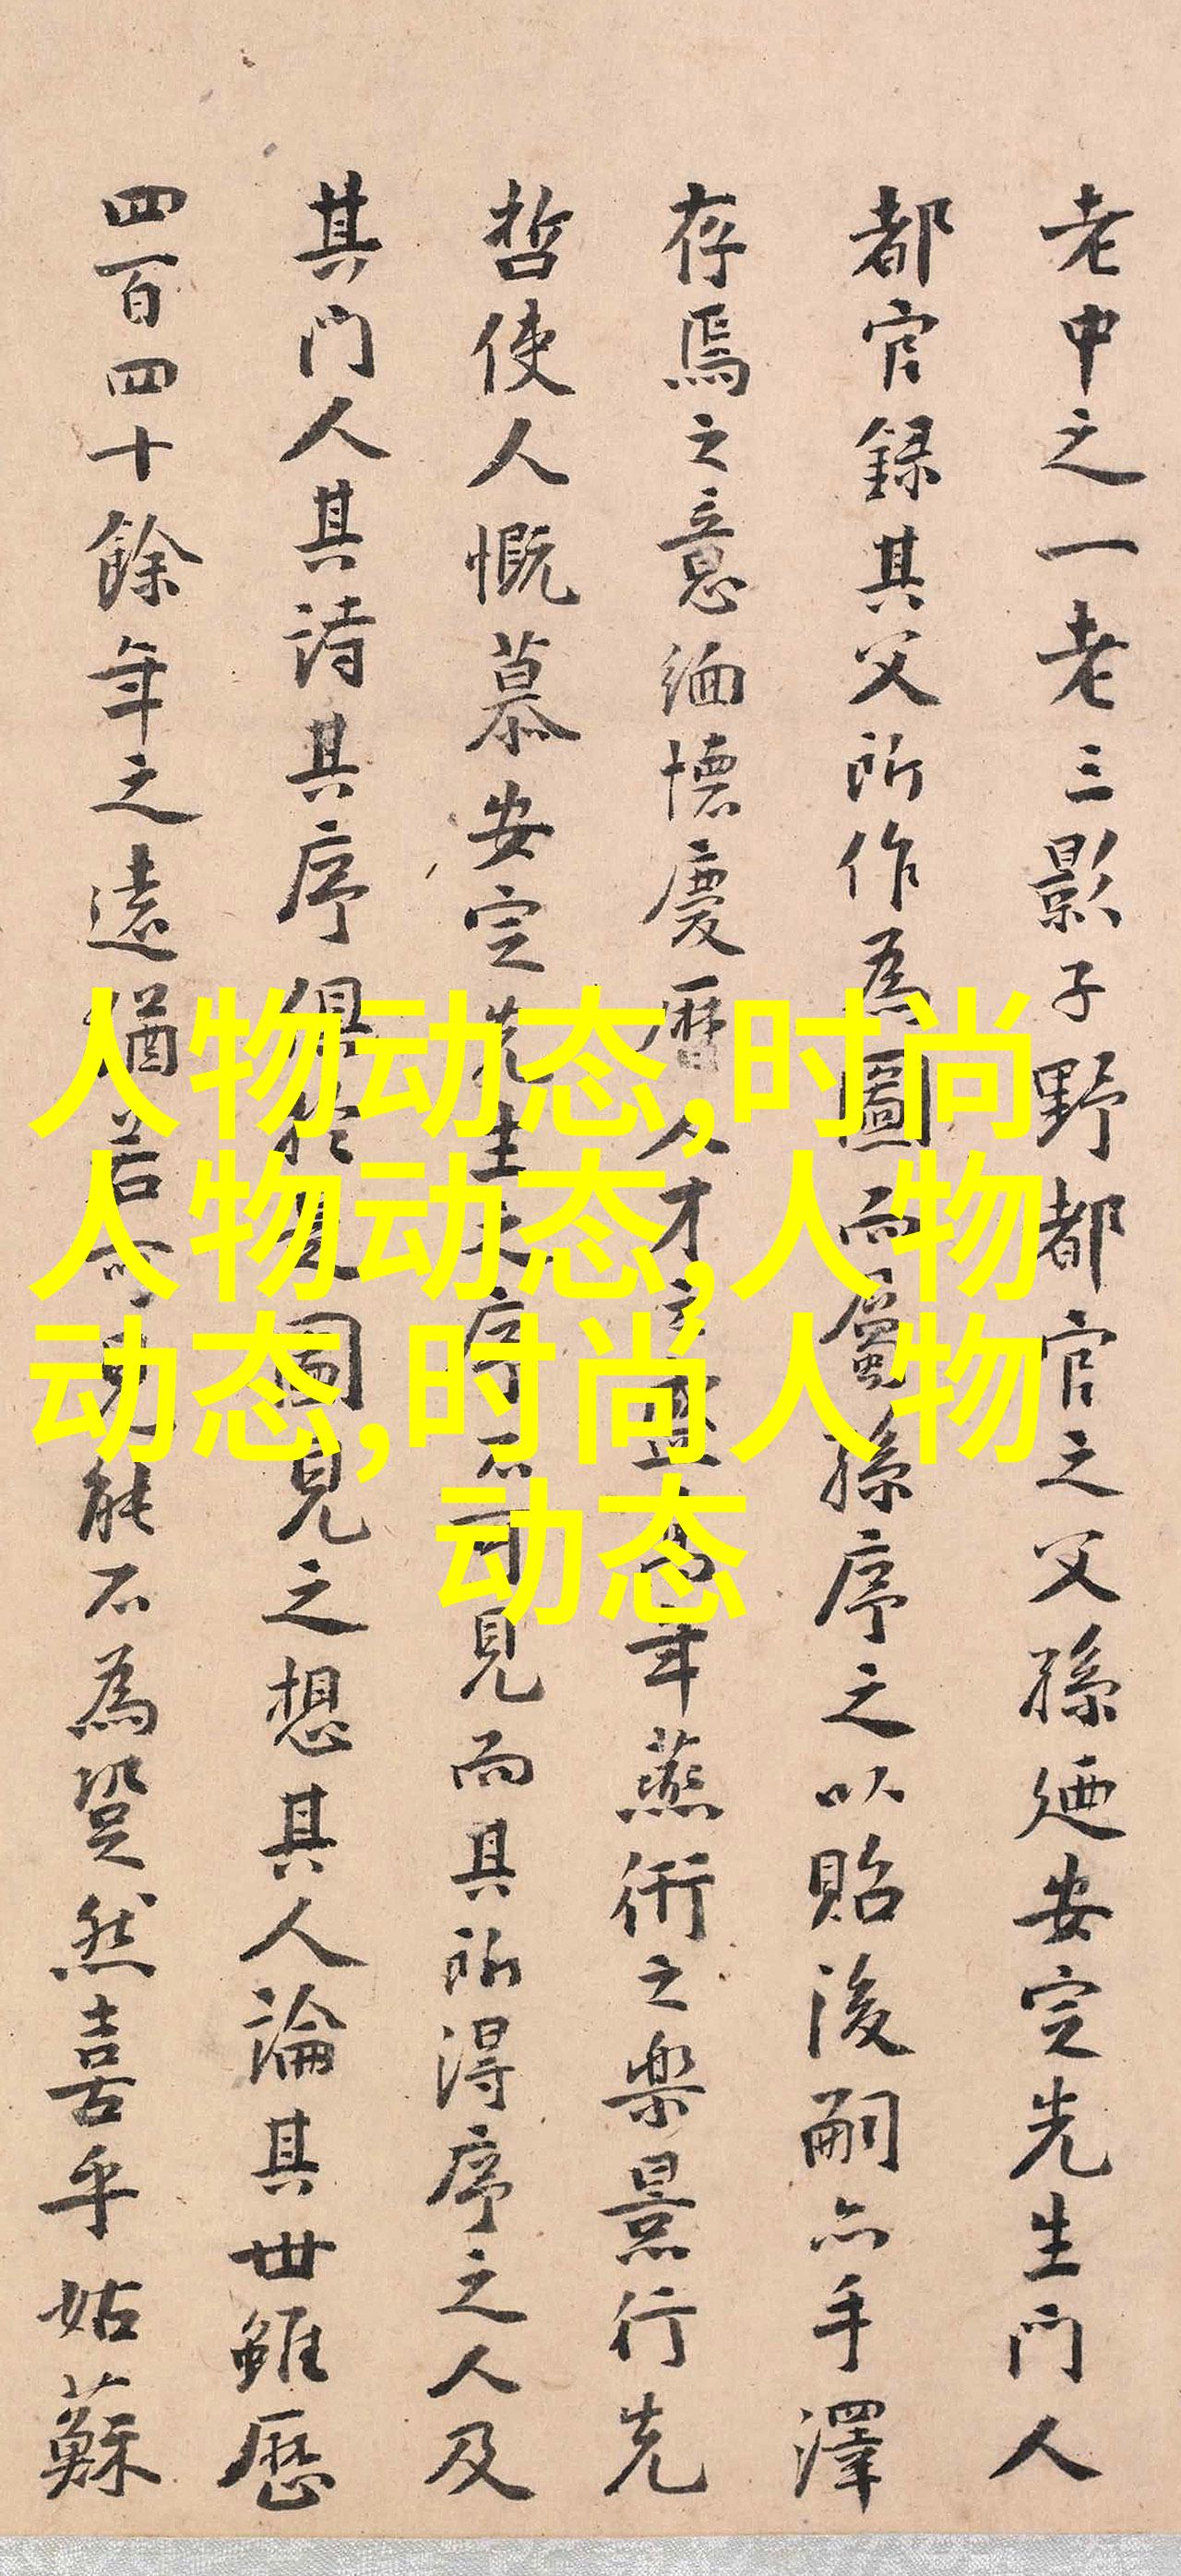 老中之一老三影子野都官之父孫廼安定先生門人
都官録其父所作為圖而屬孫序之以貽後嗣亦手澤
存焉之意緬懷慶曆人才之盛年燕衎之樂景行先
哲使人慨慕安定先生之序不可見而其所得序之人及
其門人其詩其序俱於是圖見之想其人論其世雖歷
四百四十餘年之遠猶若可見能不為跫然喜乎姑蘇
人物动态,时尚
人物动态,人物
动态,时尚人物
动态